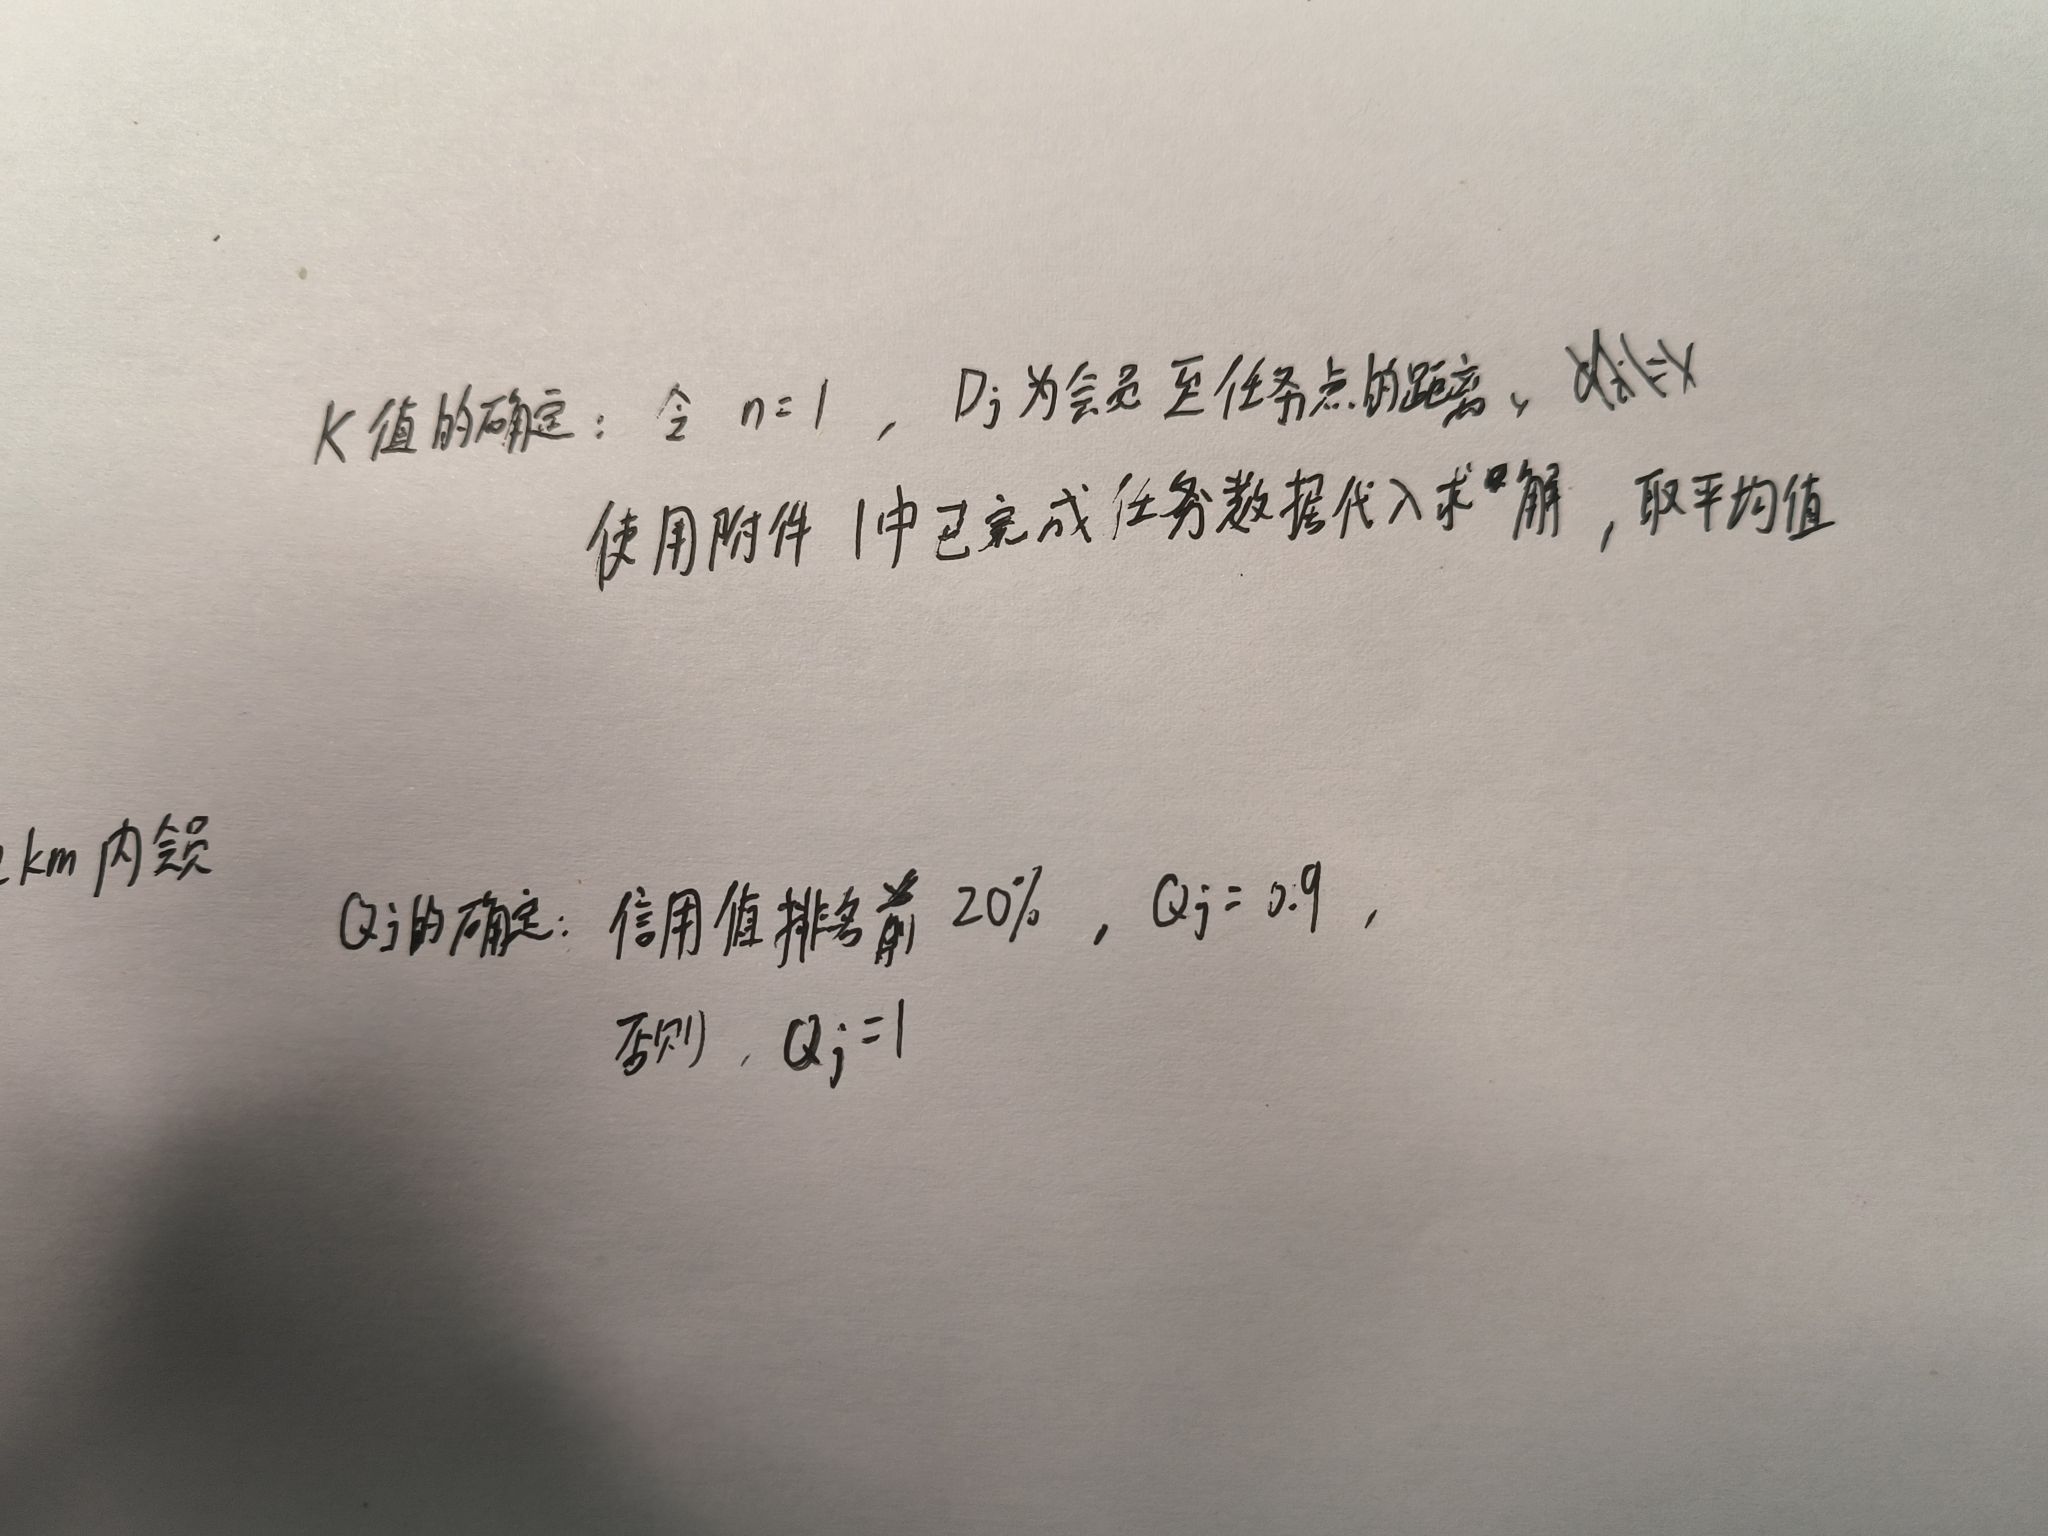 K值的确定：令 n=1，Dj为会员至任务点的距离、
使用附件1中已完成任务数据代入求解，取平均值
km内会员
Qj的确定：信用值排名前20%，Qj=0.9，
否则，Qj=1